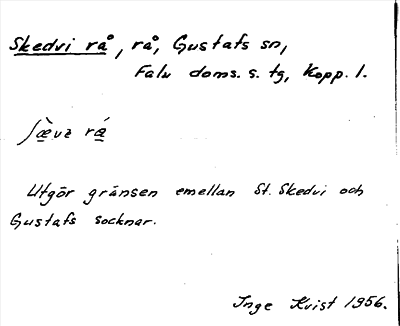 Skedvi rå, rå, Gustafs sn,
Falu doms. s. tg, Kopp. l.
ʃæ̀vɪ rá
Utgör gränsen emellan St. Skedvi och
Gustafs socknar.
Inge Kvist 1956.